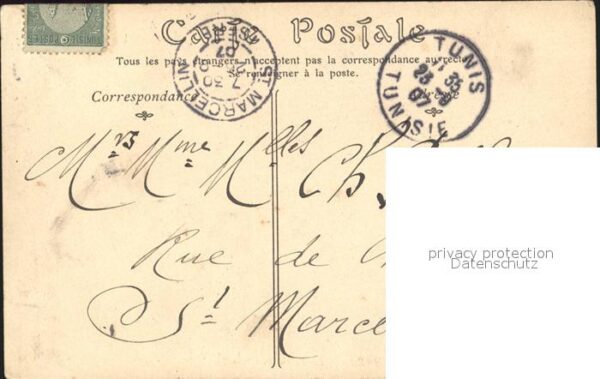 Carte Postale
Tous les pays étrangers n'acceptent pas la correspondance au recto
Se renseigner à la poste.
Correspondance
Adresse
ST MARCELLIN
7 30
07
TUNIS
TUNISIE
07
Mrs Mme Melles Ch
Rue de
St Marce
privacy protection
Datenschutz